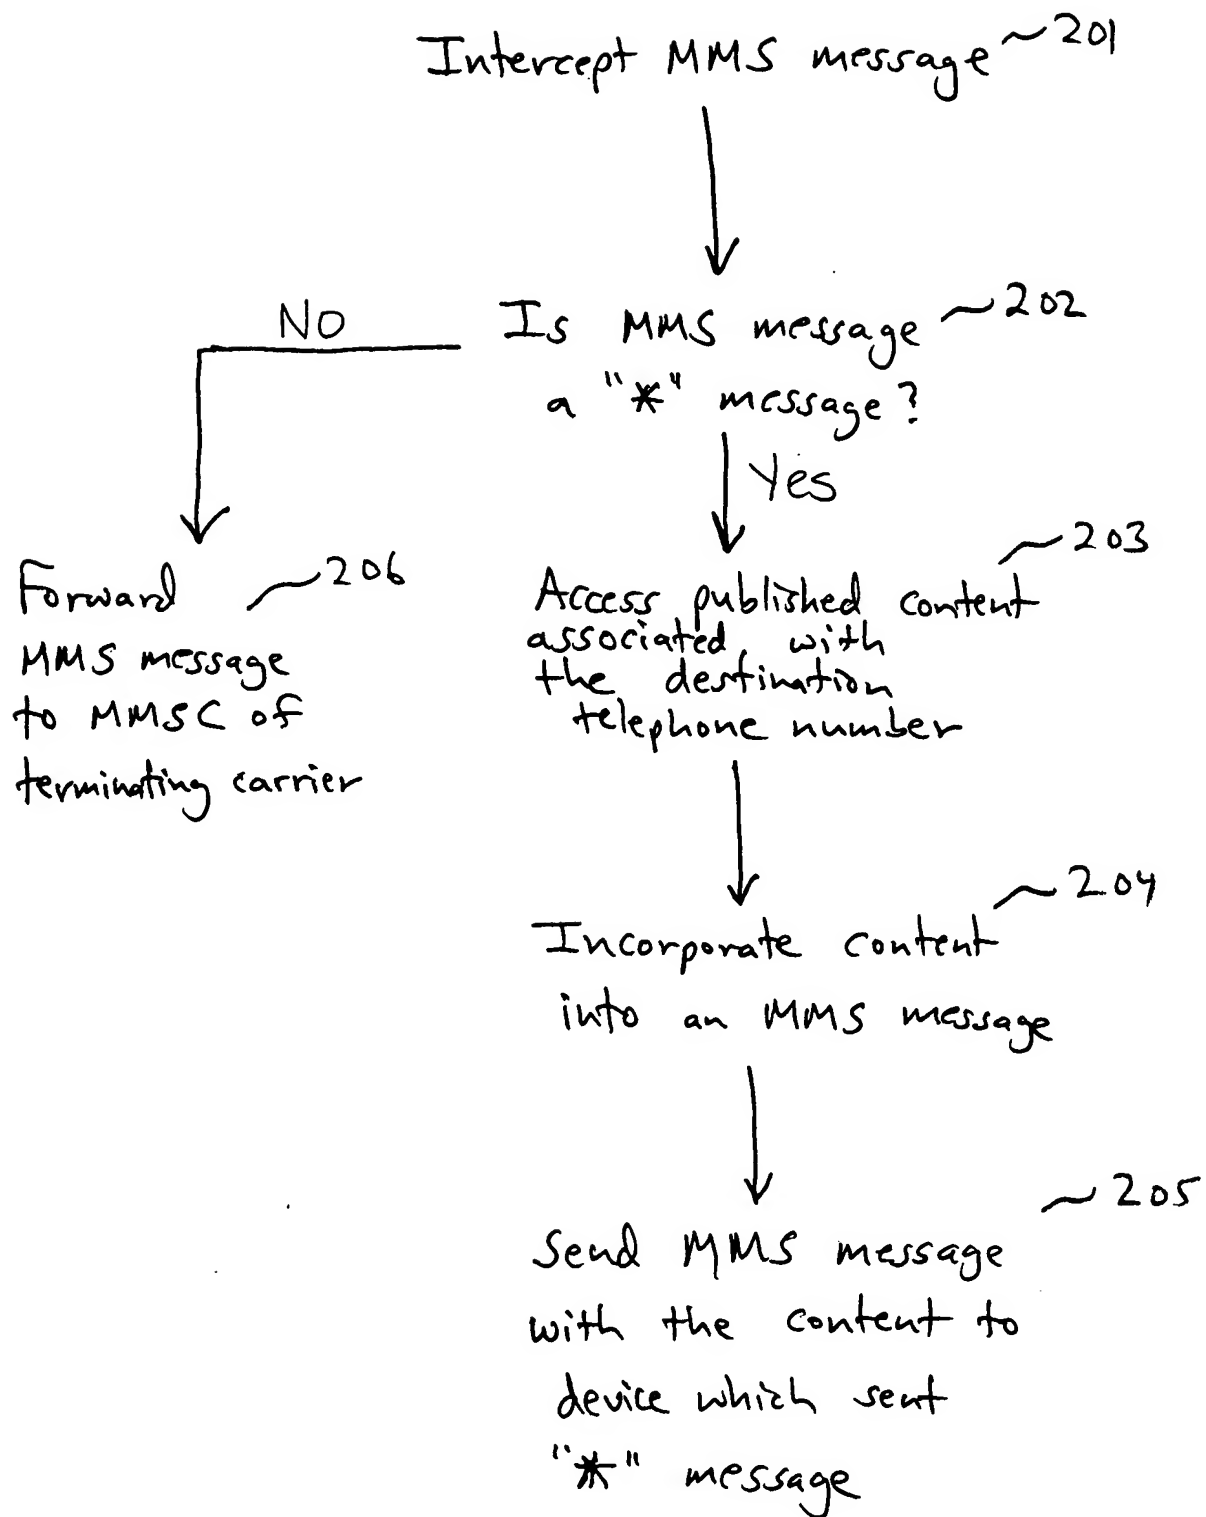 Intercept MMS message 201
Is MMS message 202
a "*" message?
NO
Yes
Forward 206
MMS message
to MMSC of
terminating carrier
Access published content 203
associated with
the destination
telephone number
Incorporate content 204
into an MMS message
Send MMS message 205
with the content to
device which sent
"*" message